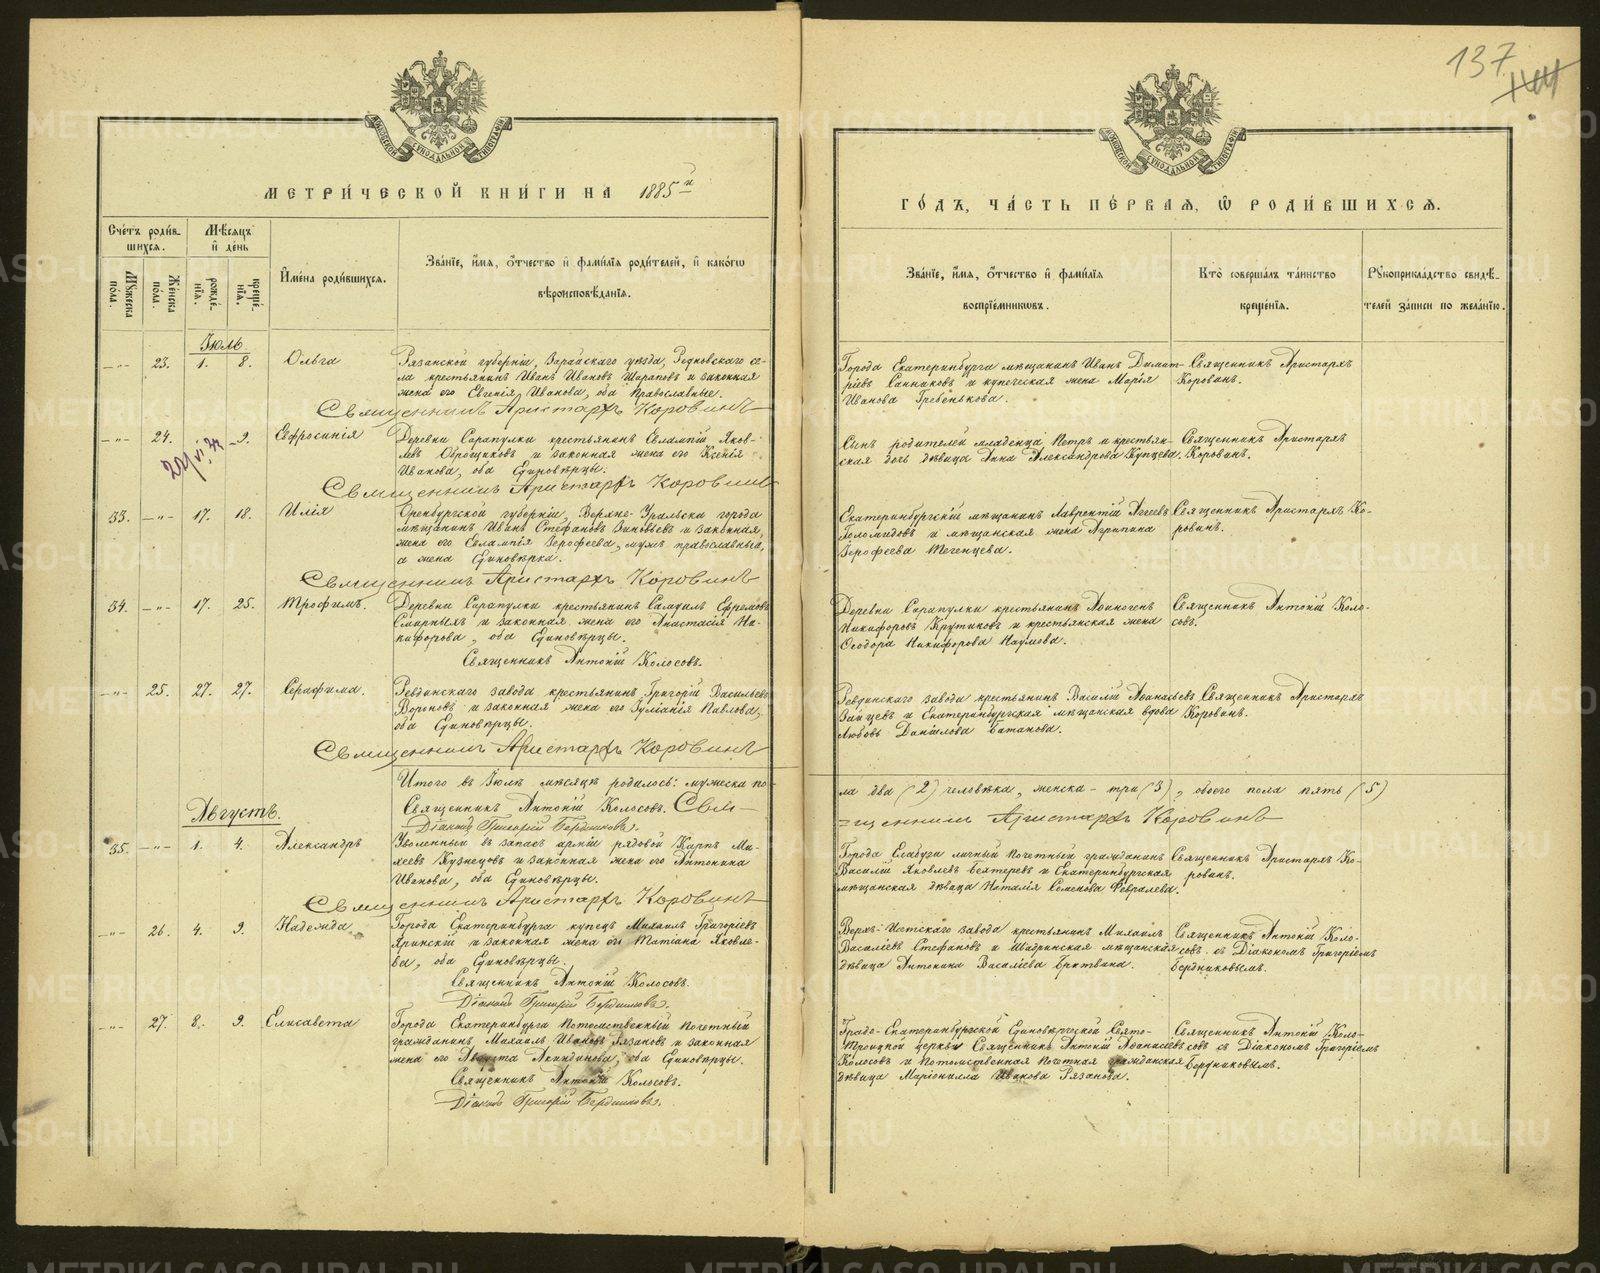 137
МЕТРИ́ЧЕСКОЙ КНИ́ГИ НА 1885й
ГО́ДЪ, ЧА́СТЬ ПЕ́РВАЯ, Ѡ РОДИ́ВШИХСЯ.
Сче́тъ роди́в-
шихся.
Мѣ́сяцъ
и де́нь
Мꙋжеска по́ла.
Же́нска по́ла.
рожде́нїя.
креще́нїя.
И҆мена̀ роди́вшихся.
Зва́нїе, и҆́мя, ѻ҆́тчество и҆ фами́лїя роди́телей, и҆ како́гѡ
вѣроисповѣ́данїя.
Зва́нїе, и҆́мя, ѻ҆́тчество и҆ фами́лїя
воспрїе́мникѡвъ.
Кто̀ соверша́лъ та́инство
креще́нїя.
Рꙋкоприкла́дство свидѣ́-
телей за́писи по жела́нїю.
Іюль.
23. 1. 8. Ольга
Рязанской губерніи, Зарайскаго уѣзда, Редновскаго се-
ла крестьянинъ Иванъ Ивановъ Шараповъ и законная
жена его Евгенія Иванова, оба Православные.
Священникъ Аристархъ Коровинъ
Города Екатеринбурга мѣщанинъ Иванъ Димит-
ріевъ Санниковъ и купеческая жена Марія
Иванова Гребенькова.
Священникъ Аристархъ
Коровинъ.
24. 9. Евфросинія
Деревни Сарапулки крестьянинъ Евлампій Яков-
левъ Оброщиковъ и законная жена его Ксенія
Иванова, оба Единовѣрцы.
Священникъ Аристархъ Коровинъ
Сынъ родителей младенца Петръ и крестьян-
ская дочь дѣвица Анна Александрова Купцева.
Священникъ Аристархъ
Коровинъ.
33. 17. 18. Илія
Оренбургской губерніи, Верхне-Уральска города
мѣщанинъ Иванъ Стефановъ Зиновьевъ и законная
жена его Евлампія Ѳерофеева, мужъ православный,
а жена Единовѣрка.
Священникъ Аристархъ Коровинъ
Екатеринбургскій мѣщанинъ Лаврентій Агеевъ
и мѣщанская жена Агрипина
Тегенцева.
Священникъ Аристархъ Ко-
ровинъ.
34. 17. 25. Трофимъ.
Деревни Сарапулки крестьянинъ Самуилъ Ефремовъ
Смирныхъ и законная жена его Анастасія Ни-
кифорова, оба Единовѣрцы.
Священникъ Антоній Колосовъ.
Деревни Сарапулки крестьянинъ Аѳиногенъ
Никифоровъ Крутиковъ и крестьянская жена
Ѳеодора Никифорова Наумова.
Священникъ Антоній Коло-
совъ.
25. 27. 27. Серафима.
Ревдинскаго завода крестьянинъ Григорій Васильевъ
Вороновъ и законная жена его Іуліанія Павлова,
оба Единовѣрцы.
Священникъ Аристархъ Коровинъ
Ревдинскаго завода крестьянинъ Василій Аѳанасьевъ
Зайцевъ и Екатеринбургская мѣщанская вдова
Любовь Данілова Батанова.
Священникъ Аристархъ
Коровинъ.
Итого въ Іюлѣ мѣсяцѣ родилось: мужеска по-
ла два (2) человѣка, женска – три (3), обоего пола пять (5)
Священникъ Антоній Колосовъ. Свя-
щенникъ Аристархъ Коровинъ
Діаконъ Григорій Бердниковъ.
Августъ.
35. 1. 4. Александръ
Уволенный въ запасъ арміи рядовой Карпъ Ми-
хеевъ Кузнецовъ и законная жена его Антонина
Иванова, оба Единовѣрцы.
Священникъ Аристархъ Коровинъ
Города Елабуги личный почетный гражданинъ
Василій Яковлевъ Бехтеревъ и Екатеринбургская
мѣщанская дѣвица Наталія Семенова Февралева.
Священникъ Аристархъ Ко-
ровинъ.
26. 4. 9. Надежда
Города Екатеринбурга купецъ Михаилъ Григорьевъ
Яринскій и законная жена его Татіана Яковле-
ва, оба Единовѣрцы.
Священникъ Антоній Колосовъ.
Діаконъ Григорій Бердниковъ.
Верхъ-Исетскаго завода крестьянинъ Михаилъ
Василіевъ Стефановъ и Шадринская мѣщанская
дѣвица Антонина Василіева Бритвина.
Священникъ Антоній Коло-
совъ съ Діакономъ Григоріемъ
Бердниковымъ.
27. 8. 9. Елисавета
Города Екатеринбурга Потомственный почетный
гражданинъ Михаилъ Ивановъ Рязановъ и законная
жена его Августа Акиндинова, оба Единовѣрцы.
Священникъ Антоній Колосовъ.
Діаконъ Григорій Бердниковъ.
Градо-Екатеринбургской Единовѣрческой Свято-
Троицкой церкви Священникъ Антоній Аѳанасіевъ
Колосовъ и Потомственная почетная гражданская
дѣвица Маріонилла Иванова Рязанова.
Священникъ Антоній Коло-
совъ съ Діакономъ Григоріемъ
Бердниковымъ.
METRIKI.GASO-URAL.RU